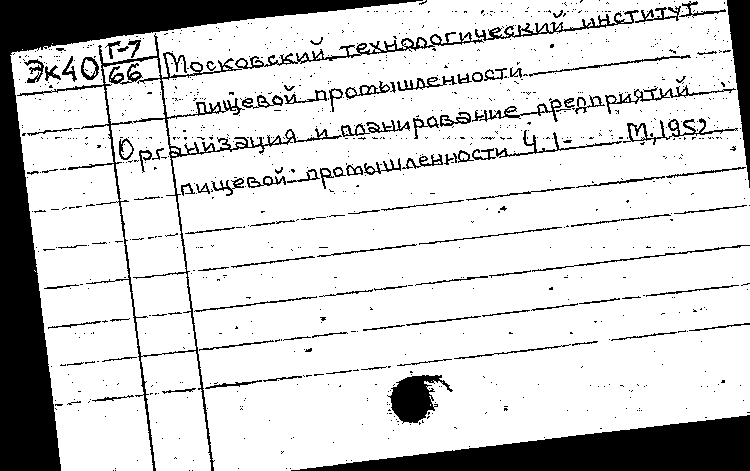 Эк40 Г-7 Московский технологический институт
66
пищевой промышленности
Организация и планирование предприятий
пищевой промышленности Ч. 1- М, 1952